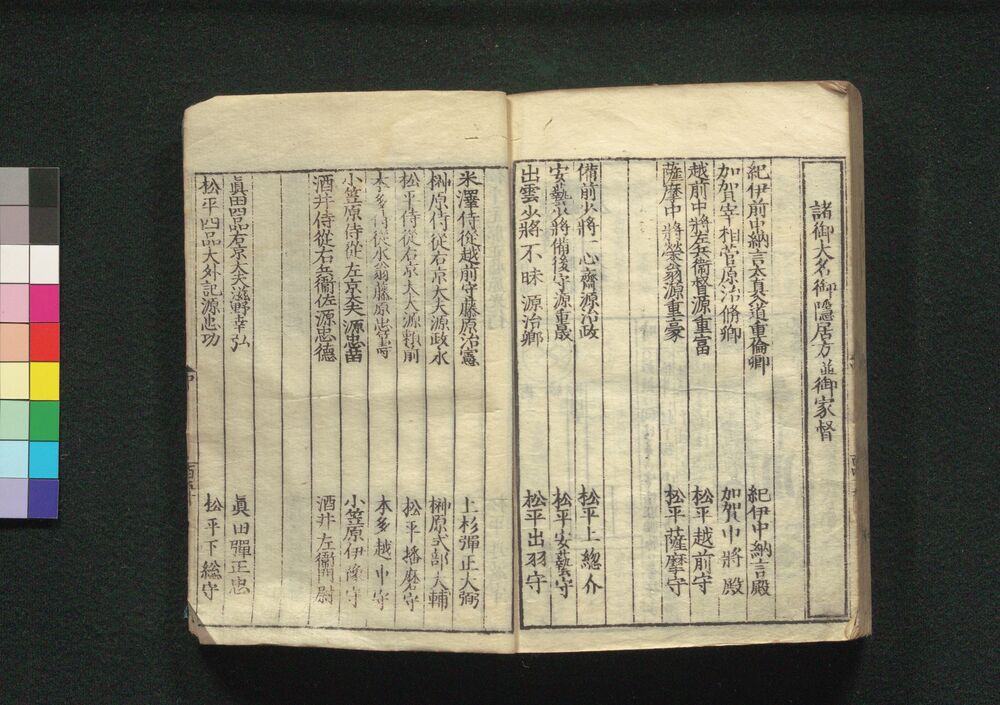 諸御大名御隠居方並御家督
紀伊前中納言太真入道重倫卿 紀伊中納言殿
加賀宰相菅原治脩卿 加賀中將殿
越前中將左兵衛督源重富 松平越前守
薩摩中將榮翁源重豪 松平薩摩守
備前少將一心齋源治政 松平上總介
安藝少將備後守源重晟 松平安藝守
出雲少將不昧源治鄉 松平出羽守
米澤侍從越前守藤原治憲 上杉彈正大弼
榊原侍從右京大夫源政永 榊原式部大輔
松平侍從右京大夫源 前 松平播磨守
本多侍從水翁藤原忠籌 本多越中守
小笠原侍從左京大夫源忠苗 小笠原伊豫守
酒井侍從右兵衛佐源忠德 酒井左衞門尉
眞田四品右京大夫滋野幸弘 眞田彈正忠
松平四品大外記源忠功 松平下総守